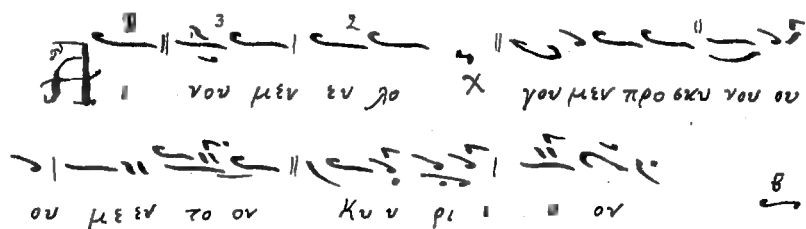 Αι νου μεν ευ λο γου μεν προ σκυ νου ου
ου με εν το ον Κυ υ ρι ι ι ον